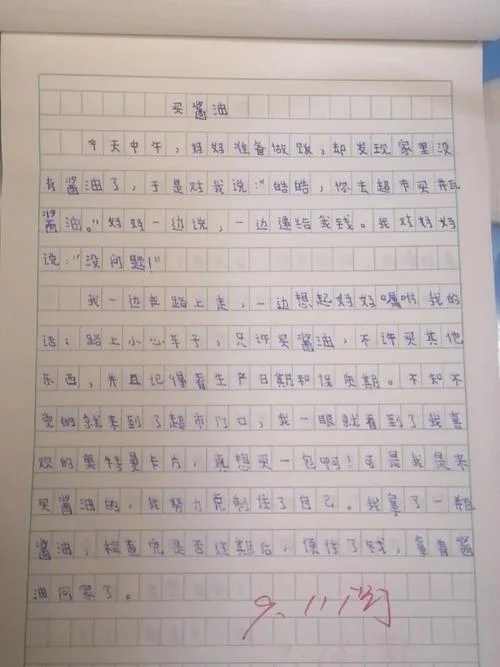 买酱油
今天中午，妈妈准备做饭，却发现家里没
有酱油了，于是对我说："皓皓，你去超市买瓶
酱油。"妈妈一边说，一边递给我钱。我对妈妈
说："没问题！"
我一边在路上走，一边想起妈妈嘱咐我的
话：路上小心车子，只许买酱油，不许买其他
东西，并且记得看生产日期和保质期。不知不
觉的就来到了超市门口，我一眼就看到了我喜
欢的奥特曼卡片，真想买一包啊！可是我是来
买酱油的，我努力克制住了自己。我拿了一瓶
酱油，检查完是否过期后，便付了钱，拿着酱
油回家了。
9.11